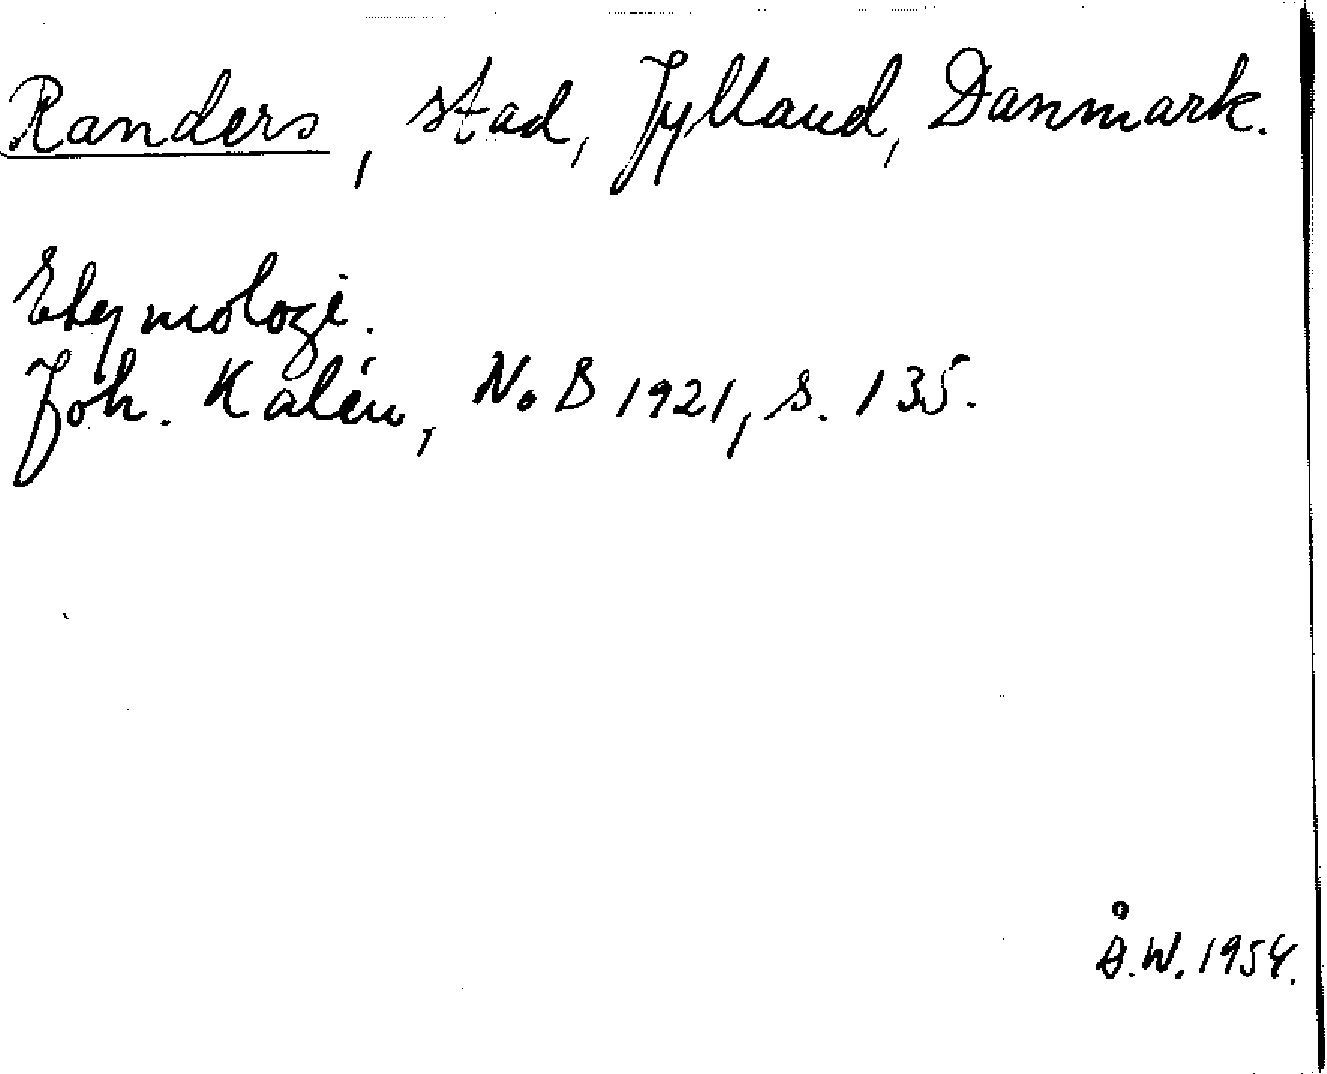 Randers, stad, Jylland, Danmark.
Etymologi.
Joh. Kalén, NoB 1921, s. 135.
Å.W. 1954.